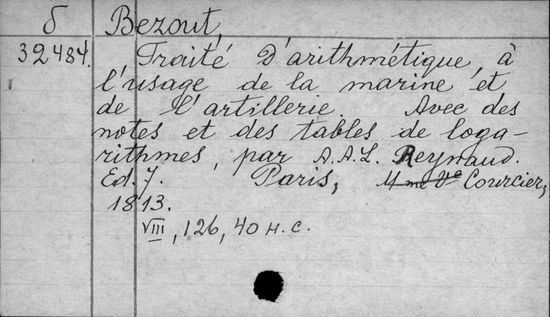 δ Bezout,
32484. Traité d'arithmétique, à
l'usage de la marine et
de l'artillerie. Avec des
notes et des tables de loga-
rithmes, par A.A.L. Reynaud.
Ed. 7. Paris, Mme Ve Courcier,
1813.
VIII, 126, 40 н. с.